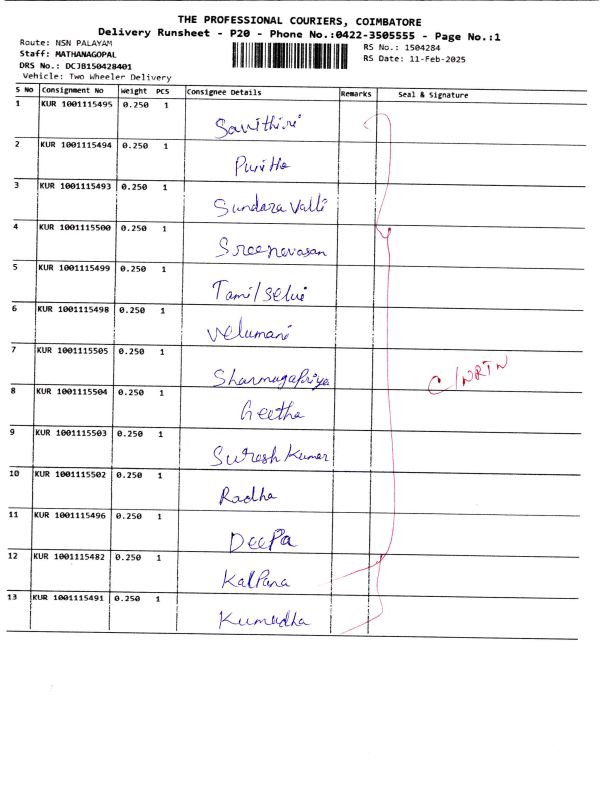 THE PROFESSIONAL COURIERS, COIMBATORE
Delivery Runsheet - P20 - Phone No.:0422-3505555 - Page No.:1
Route: NSN PALAYAM
RS No.: 1504284
Staff: MATHANAGOPAL
RS Date: 11-Feb-2025
DRS No.: DCJB150428401
Vehicle: Two Wheeler Delivery
S No Consignment No Weight PCS Consignee Details Remarks Seal & Signature
1 KUR 1001115495 0.250 1 Savithiri
2 KUR 1001115494 0.250 1
3 KUR 1001115493 0.250 1 Sundara Valli
4 KUR 1001115500 0.250 1 Sreenevasan
5 KUR 1001115499 0.250 1 Tamil Selvi
6 KUR 1001115498 0.250 1 Velumani
7 KUR 1001115505 0.250 1 ShanmugaPriya
C/NRTN
8 KUR 1001115504 0.250 1 Geetha
9 KUR 1001115503 0.250 1 Suresh Kumar
10 KUR 1001115502 0.250 1 Radha
11 KUR 1001115496 0.250 1 DeePa
12 KUR 1001115482 0.250 1 KalPana
13 KUR 1001115491 0.250 1 Kumudha